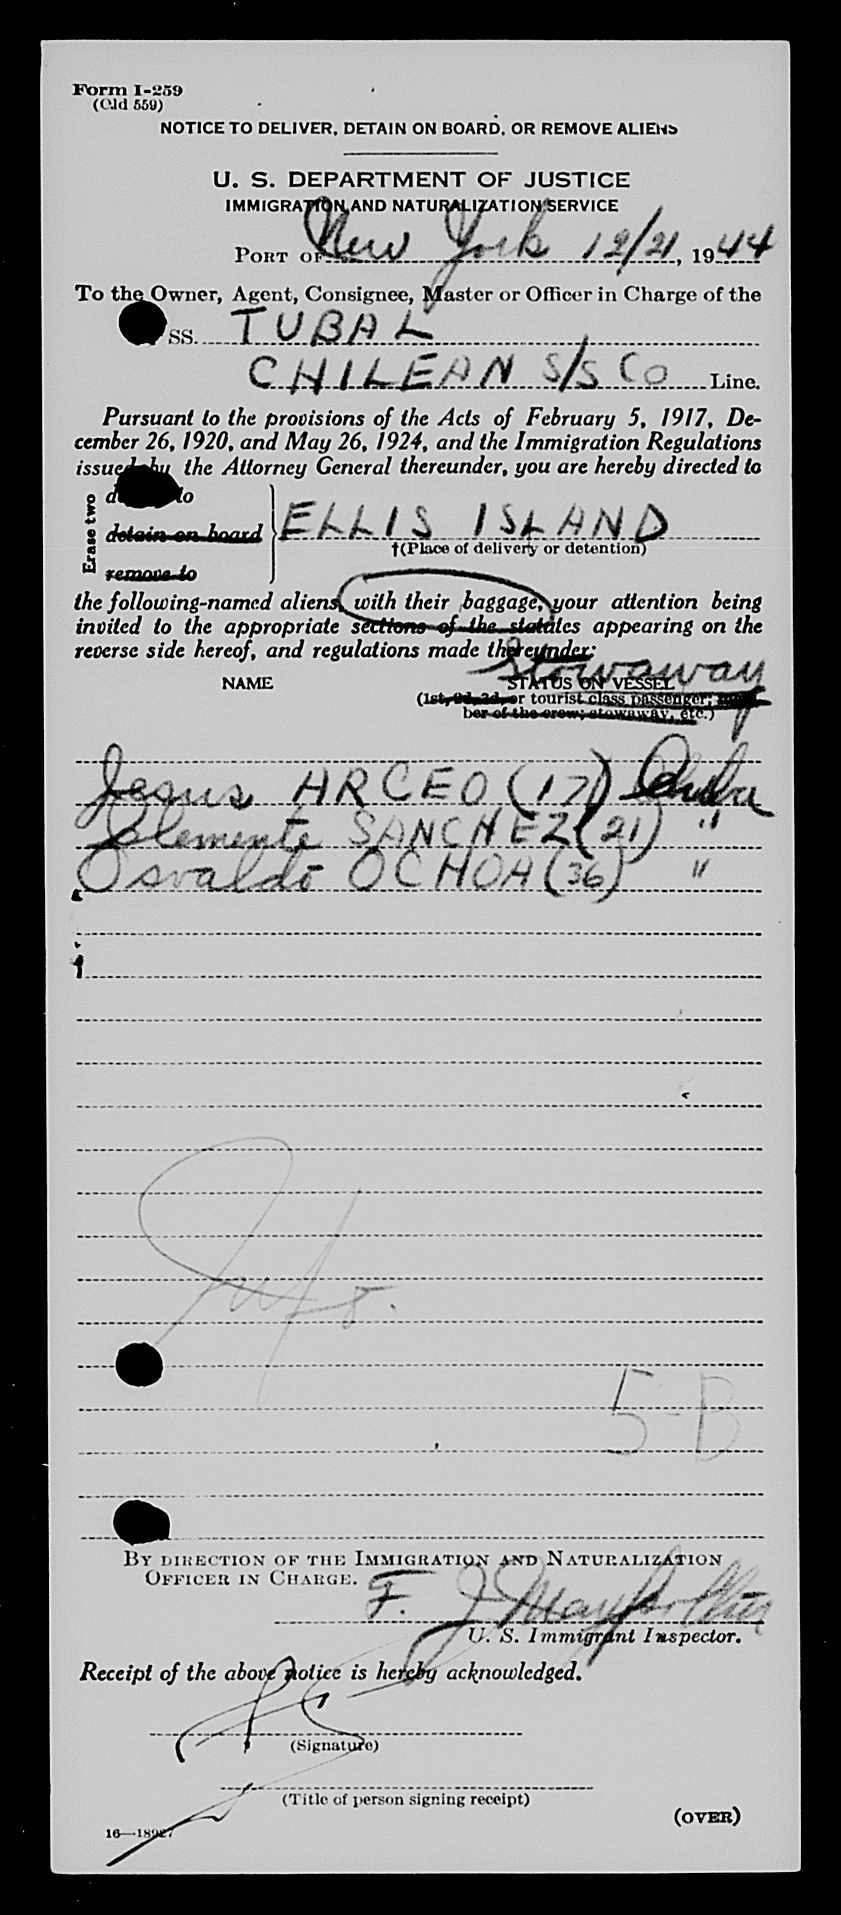 Form I-259
(Old 559)
NOTICE TO DELIVER, DETAIN ON BOARD, OR REMOVE ALIENS
U. S. DEPARTMENT OF JUSTICE
IMMIGRATION AND NATURALIZATION SERVICE
PORT OF New York 12/21, 1944
To the Owner, Agent, Consignee, Master or Officer in Charge of the
SS. TUBAL
CHILEAN S/S CO Line.
Pursuant to the provisions of the Acts of February 5, 1917, De-
cember 26, 1920, and May 26, 1924, and the Immigration Regulations
issued by the Attorney General thereunder, you are hereby directed to
Erase two
to
detain on board
remove to
ELLIS ISLAND
†(Place of delivery or detention)
the following-named aliens, with their baggage, your attention being
invited to the appropriate sections of the statutes appearing on the
reverse side hereof, and regulations made thereunder:
Stowaway
NAME STATUS ON VESSEL
(1st, 2d, 3d, or tourist class passenger;
ber of the crew; stowaway, etc.)
Jesus ARCEO (17)
Clemente SANCHEZ (21) "
Osvaldo OCHOA (36) "
5-B
BY DIRECTION OF THE IMMIGRATION AND NATURALIZATION
OFFICER IN CHARGE.
F. J.
U. S. Immigrant Inspector.
Receipt of the above notice is hereby acknowledged.
(Signature)
(Title of person signing receipt)
16—18927
(OVER)